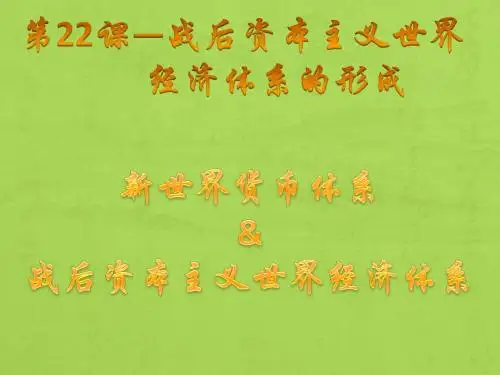 第22课—战后资本主义世界
经济体系的形成
新世界货币体系
&
战后资本主义世界经济体系